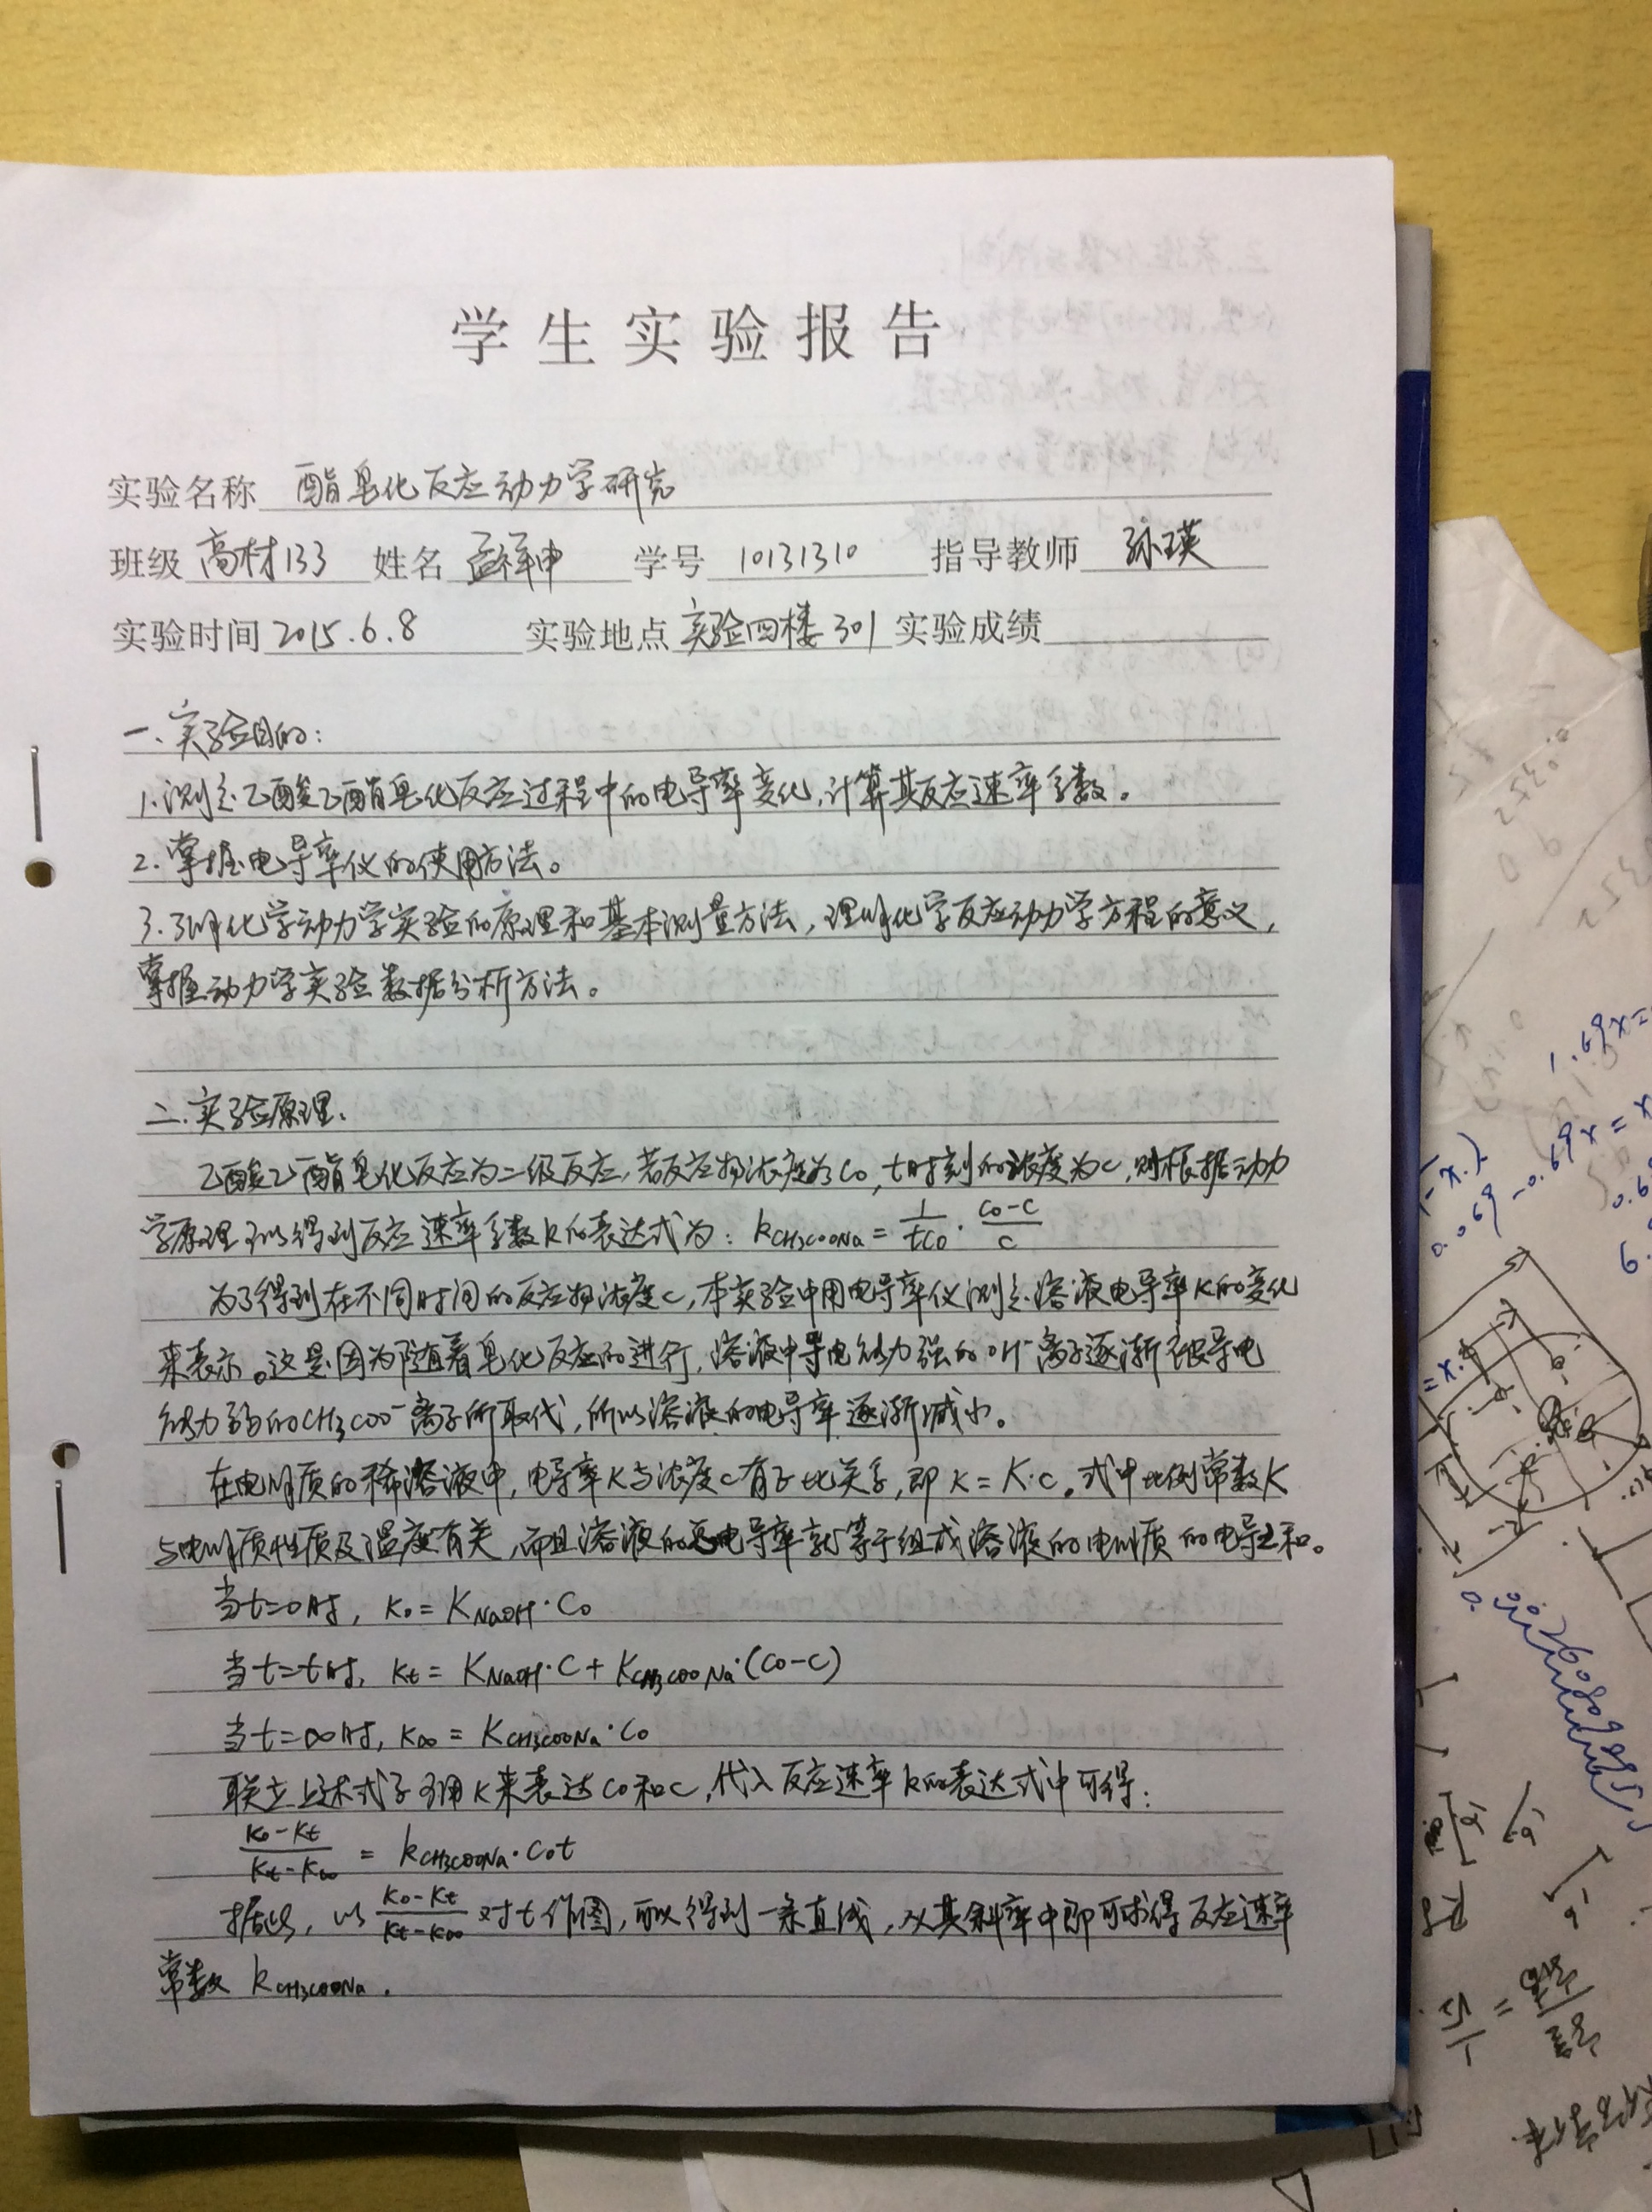 学生实验报告
实验名称 酯皂化反应动力学研究
班级 高材133 姓名 孟祥申 学号 10131310 指导教师 孙瑛
实验时间 2015.6.8 实验地点 实验四楼301 实验成绩
一.实验目的:
1.测定乙酸乙酯皂化反应过程中的电导率变化,计算其反应速率系数。
2.掌握电导率仪的使用方法。
3.了解化学动力学实验的原理和基本测量方法,理解化学反应动力学方程的意义,
掌握动力学实验数据分析方法。
二.实验原理.
乙酸乙酯皂化反应为二级反应,若反应物浓度为C0,t时刻的浓度为c,则根据动力
学原理可以得到反应速率系数k的表达式为: kCH3COONa = 1/tC0 · C0-C/C
为了得到在不同时间的反应物浓度c,本实验中用电导率仪测定溶液电导率κ的变化
来表示。这是因为随着皂化反应的进行,溶液中导电能力强的OH⁻离子逐渐被导电
能力弱的CH3COO⁻离子所取代,所以溶液的电导率逐渐减小。
在电解质的稀溶液中,电导率κ与浓度c有正比关系,即κ=K·c。式中比例常数K
与电解质性质及温度有关,而且溶液的总电导率就等于组成溶液的电解质的电导之和。
当t=0时, κ0=KNaOH·C0
当t=t时, κt=KNaOH·C+KCH3COONa·(C0-C)
当t=∞时, κ∞=KCH3COONa·C0
联立上述式子可用κ来表达C0和C,代入反应速率k的表达式中可得:
κ0-κt/κt-κ∞ = kCH3COONa·C0t
据此, 以 κ0-κt/κt-κ∞ 对t作图,可以得到一条直线,从其斜率中即可求得反应速率
常数 kCH3COONa.